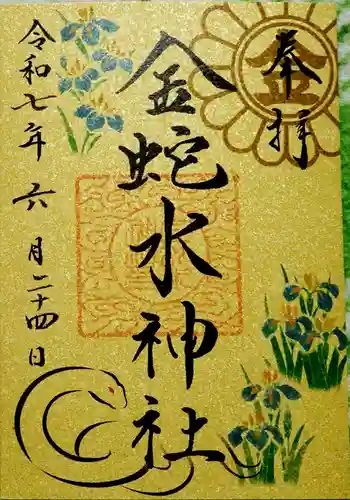 奉拝
金
金蛇水神社
令和七年六月二十四日